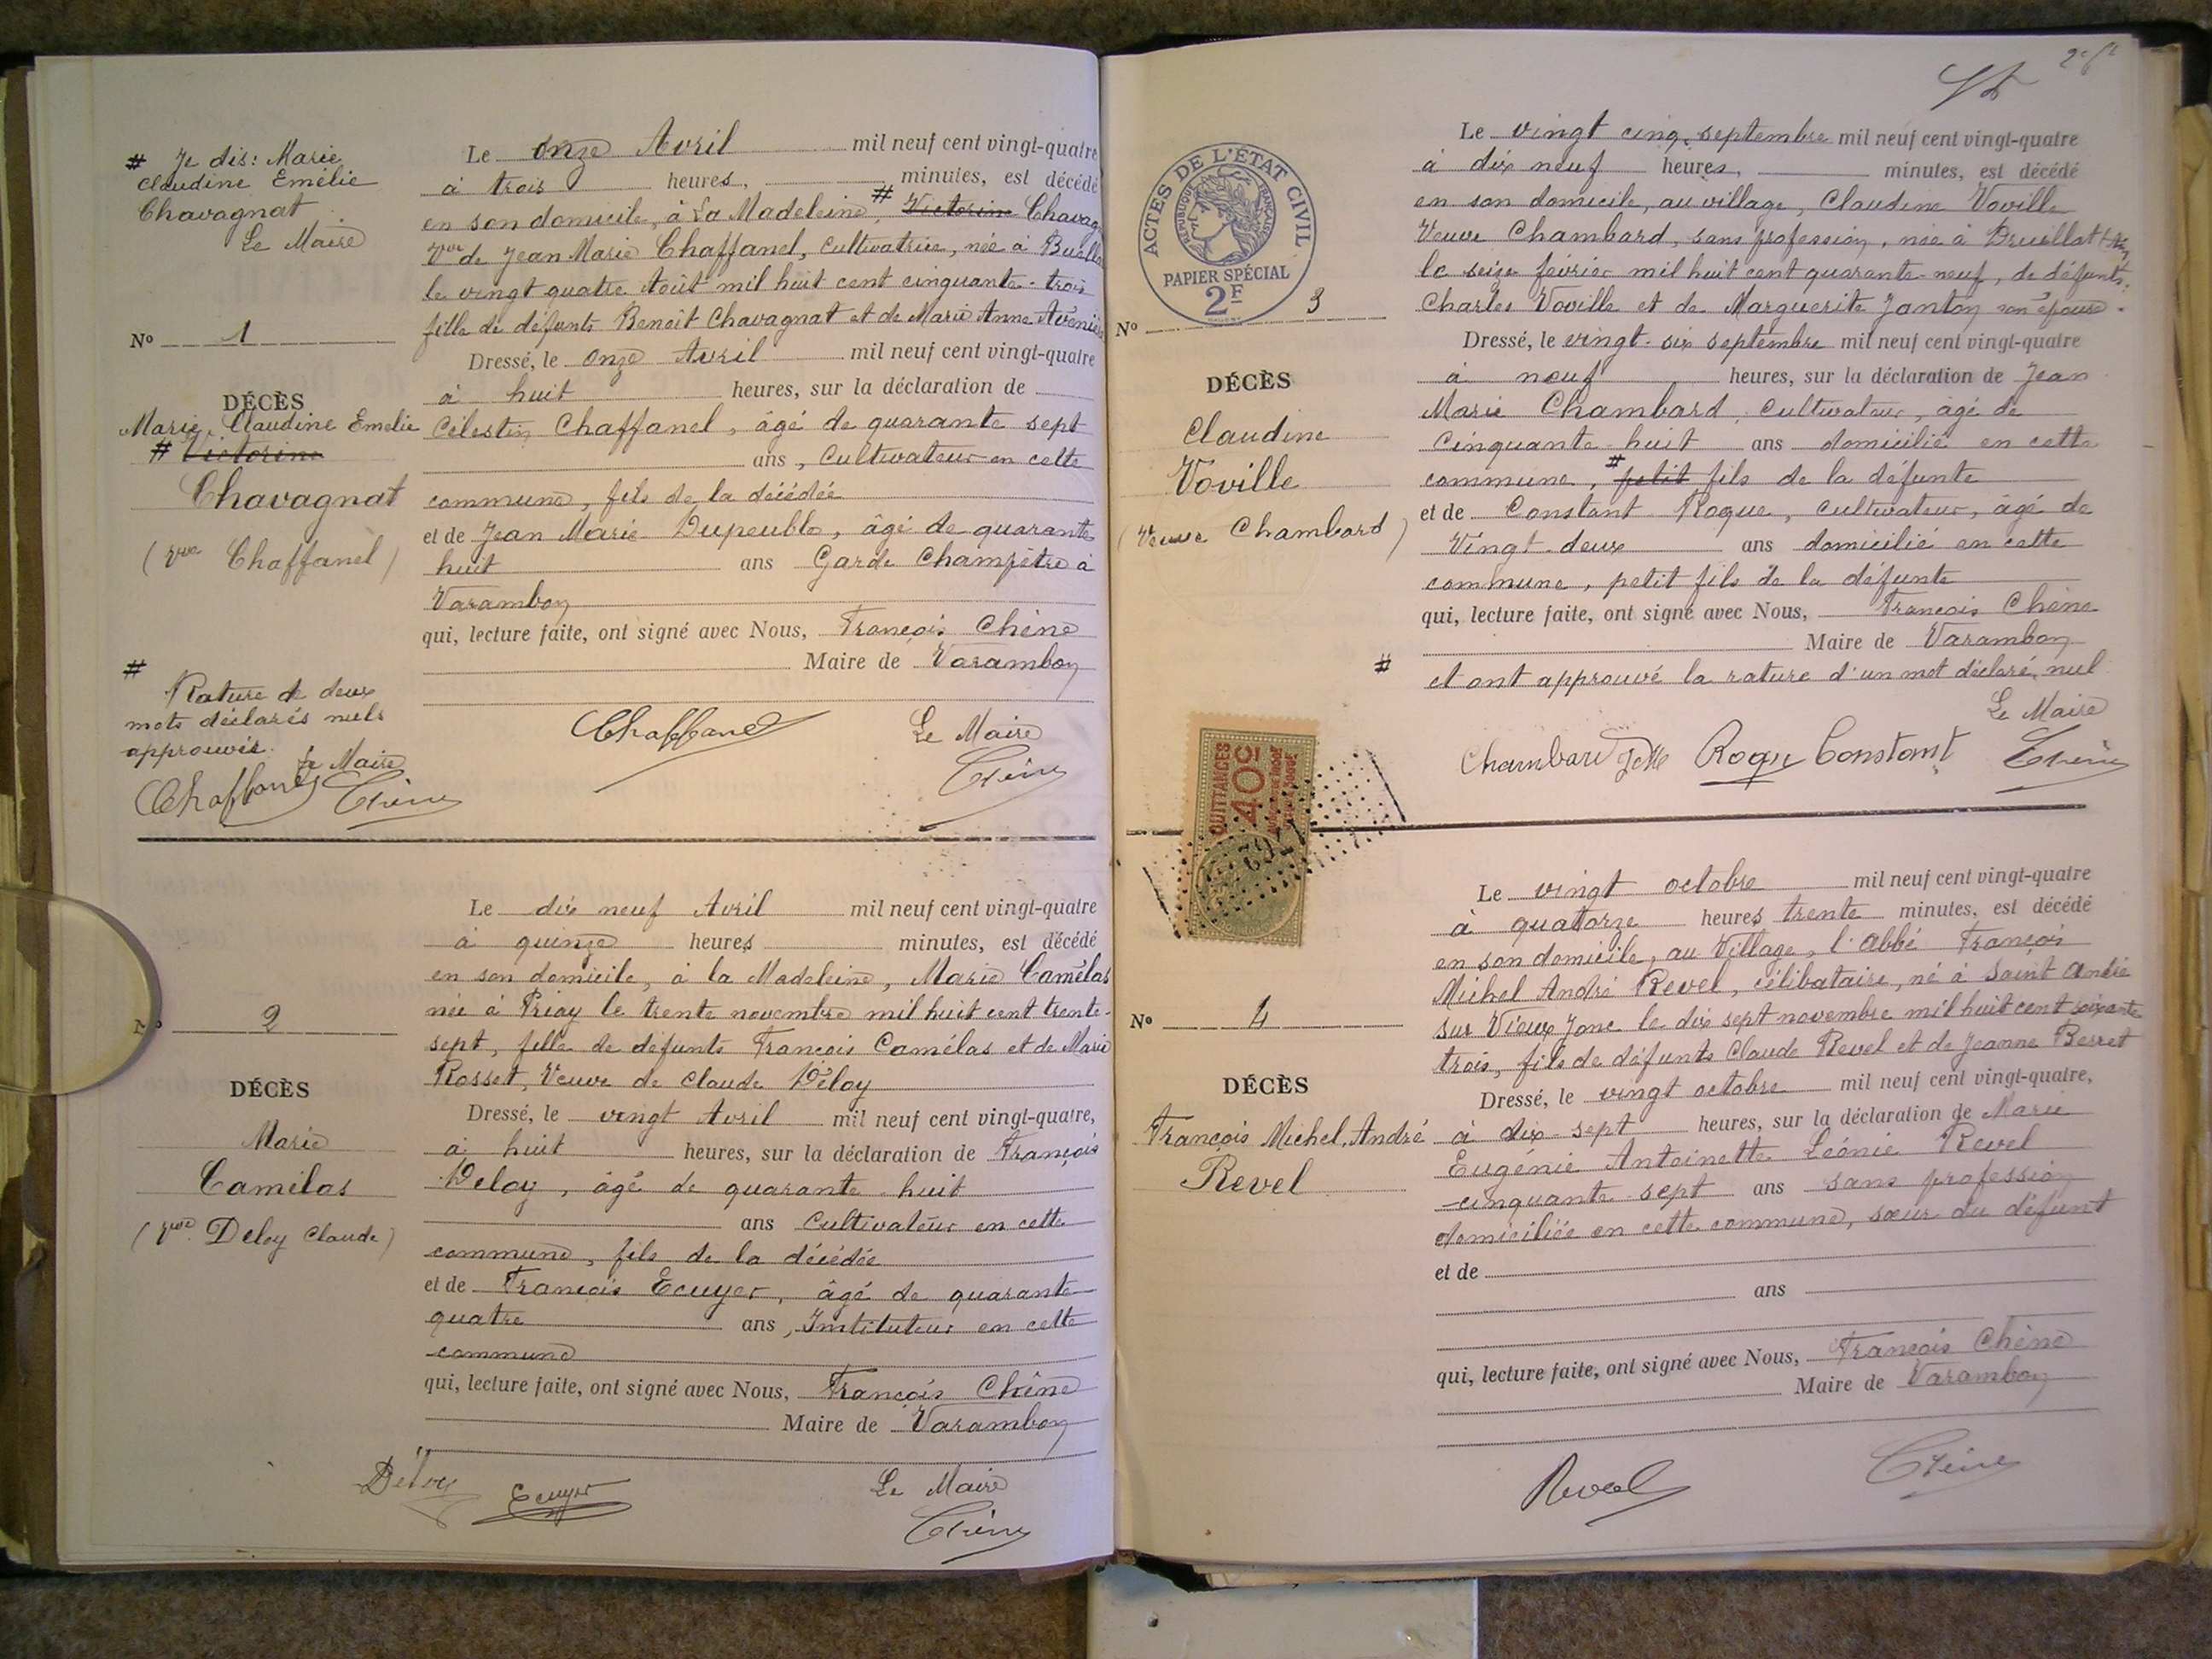 # Je dis: Marie
Claudine Emélie
Chavagnat
Le Maire
No 1
DÉCÈS
Marie Claudine Emelie
# Victorine
Chavagnat
(Vve Chaffanel)
#
Rature de deux
mots déclarés nuls
approuvés.
Le Maire
Chaffanel Chêne
Le onze Avril mil neuf cent vingt-quatre
à trois heures, minutes, est décédé
en son domicile, à La Madeleine, # Victorine Chavag
Vve de Jean Marie Chaffanel, cultivatrice, née à
le vingt quatre Août mil huit cent cinquante-trois
fille de défunts Benoît Chavagnat et de Marie Anne
Dressé, le onze Avril mil neuf cent vingt-quatre
à huit heures, sur la déclaration de
Célestin Chaffanel, âgé de quarante sept
ans, Cultivateur en cette
commune, fils de la décédée
et de Jean Marie Dupeuble, âgé de quarante
huit ans Garde Champêtre à
Varambon
qui, lecture faite, ont signé avec Nous, François Chêne
Maire de Varambon
Chaffanel Le Maire
Chêne
No 2
DÉCÈS
Marie
Camélas
(Vve Deloy Claude)
Le dix neuf Avril mil neuf cent vingt-quatre
à quinze heures minutes, est décédé
en son domicile, à la Madeleine, Marie Camélas
née à Priay le trente novembre mil huit cent trente-
sept, fille de défunts François Camélas et de Marie
Rosset, Veuve de Claude Déloy
Dressé, le vingt Avril mil neuf cent vingt-quatre,
à huit heures, sur la déclaration de François
Deloy, âgé de quarante-huit
ans Cultivateur en cette
commune, fils de la décédée
et de François Ecuyer, âgé de quarante
quatre ans, Instituteur en cette
commune
qui, lecture faite, ont signé avec Nous, François Chêne
Maire de Varambon
Deloy Ecuyer Le Maire
Chêne
ACTES DE L'ÉTAT CIVIL
RÉPUBLIQUE FRANÇAISE
PAPIER SPÉCIAL
2F
No 3
DÉCÈS
Claudine
Voville
(Veuve Chambard)
Le vingt cinq septembre mil neuf cent vingt-quatre
à dix neuf heures, minutes, est décédé
en son domicile, au village, Claudine Voville
Veuve Chambard, sans profession, née à Druillat
le seize février mil huit cent quarante-neuf, de défunts
Charles Voville et de Marguerite Janton son épouse.
Dressé, le vingt-six septembre mil neuf cent vingt-quatre
à neuf heures, sur la déclaration de Jean
Marie Chambard, cultivateur, âgé de
Cinquante-huit ans domicilié en cette
commune, # petit fils de la défunte
et de Constant Roque, cultivateur, âgé de
Vingt-deux ans domicilié en cette
commune, petit fils de la défunte
qui, lecture faite, ont signé avec Nous, François Chêne
Maire de Varambon
# et ont approuvé la rature d'un mot déclaré nul
Le Maire
Chambard JM Roque Constant Chêne
QUITTANCES
40c
No 4
DÉCÈS
François Michel, André
Revel
Le vingt octobre mil neuf cent vingt-quatre
à quatorze heures trente minutes, est décédé
en son domicile, au Village, l'abbé François
Michel André Revel, célibataire, né à Saint André
sur Vieux Jonc le dix sept novembre mil huit cent soixante
trois, fils de défunts Claude Revel et de Jeanne Berret
Dressé, le vingt octobre mil neuf cent vingt-quatre,
à dix-sept heures, sur la déclaration de Marie
Eugénie Antoinette Léonie Revel
cinquante-sept ans sans profession
domiciliée en cette commune, sœur du défunt
et de
ans
qui, lecture faite, ont signé avec Nous, François Chêne
Maire de Varambon
Revel Chêne